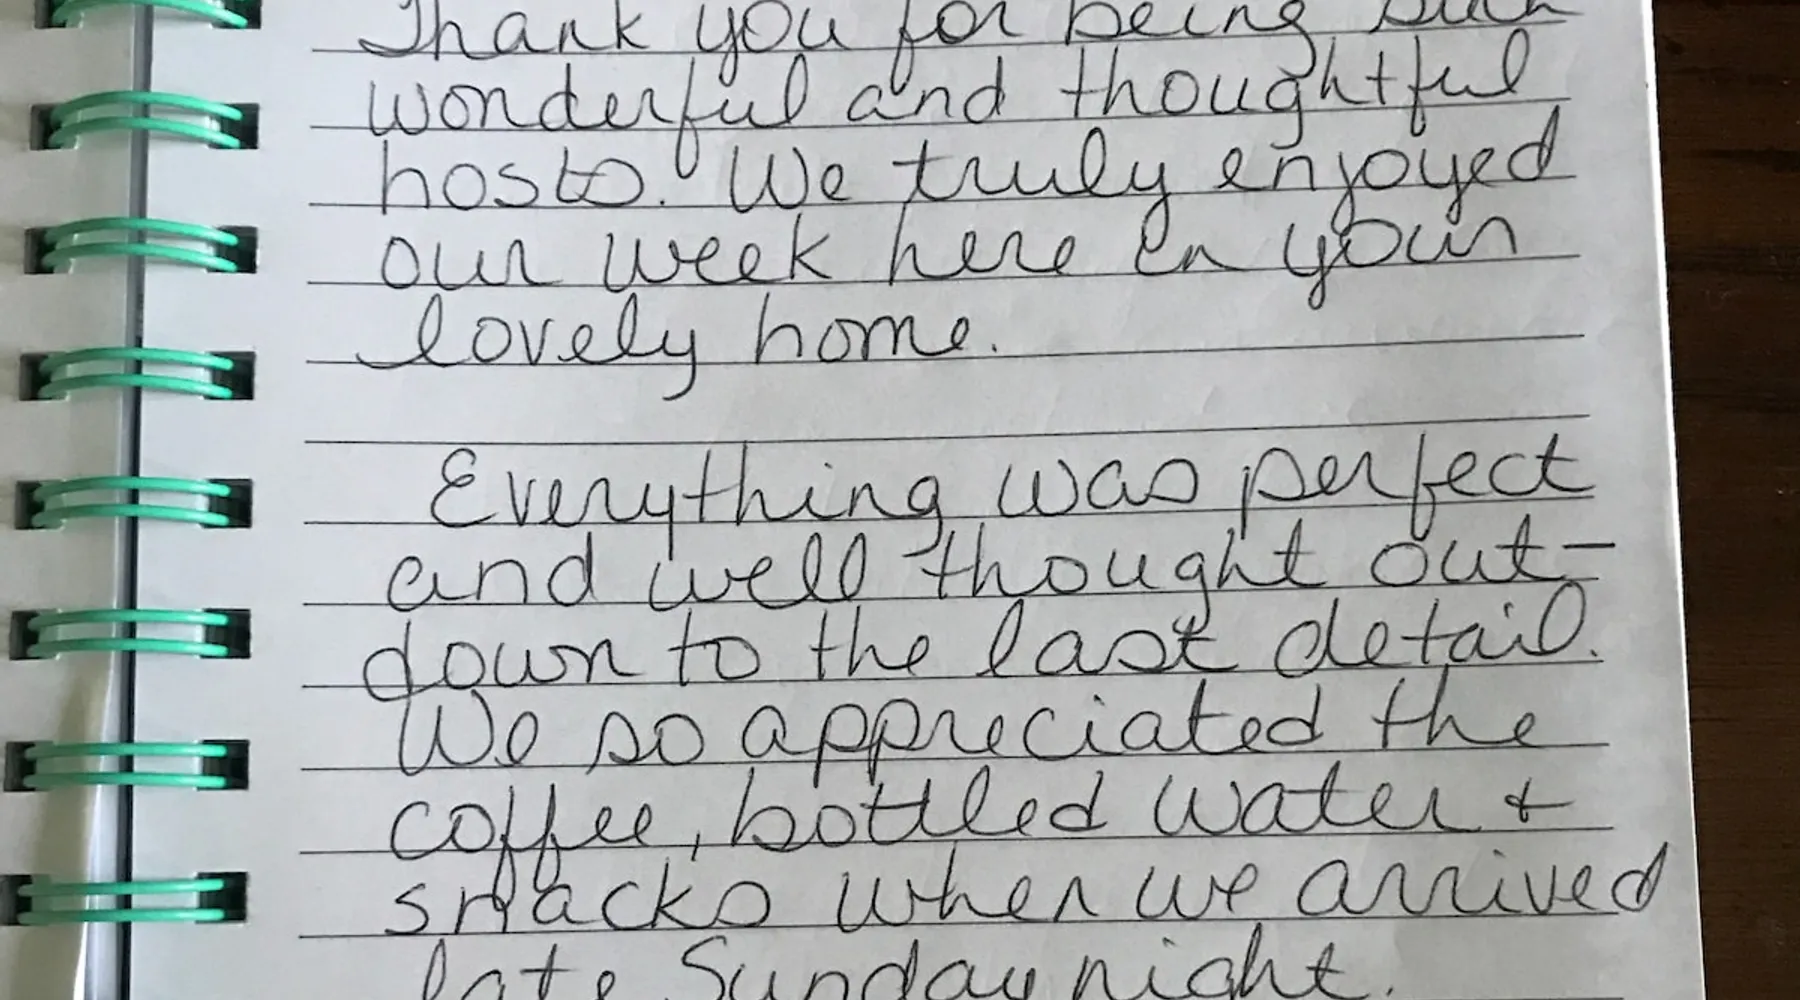 Thank you for being such
wonderful and thoughtful
hosts. We truly enjoyed
our week here in your
lovely home.
Everything was perfect
and well thought out-
down to the last detail.
We so appreciated the
coffee, bottled water +
snacks when we arrived
late Sunday night.